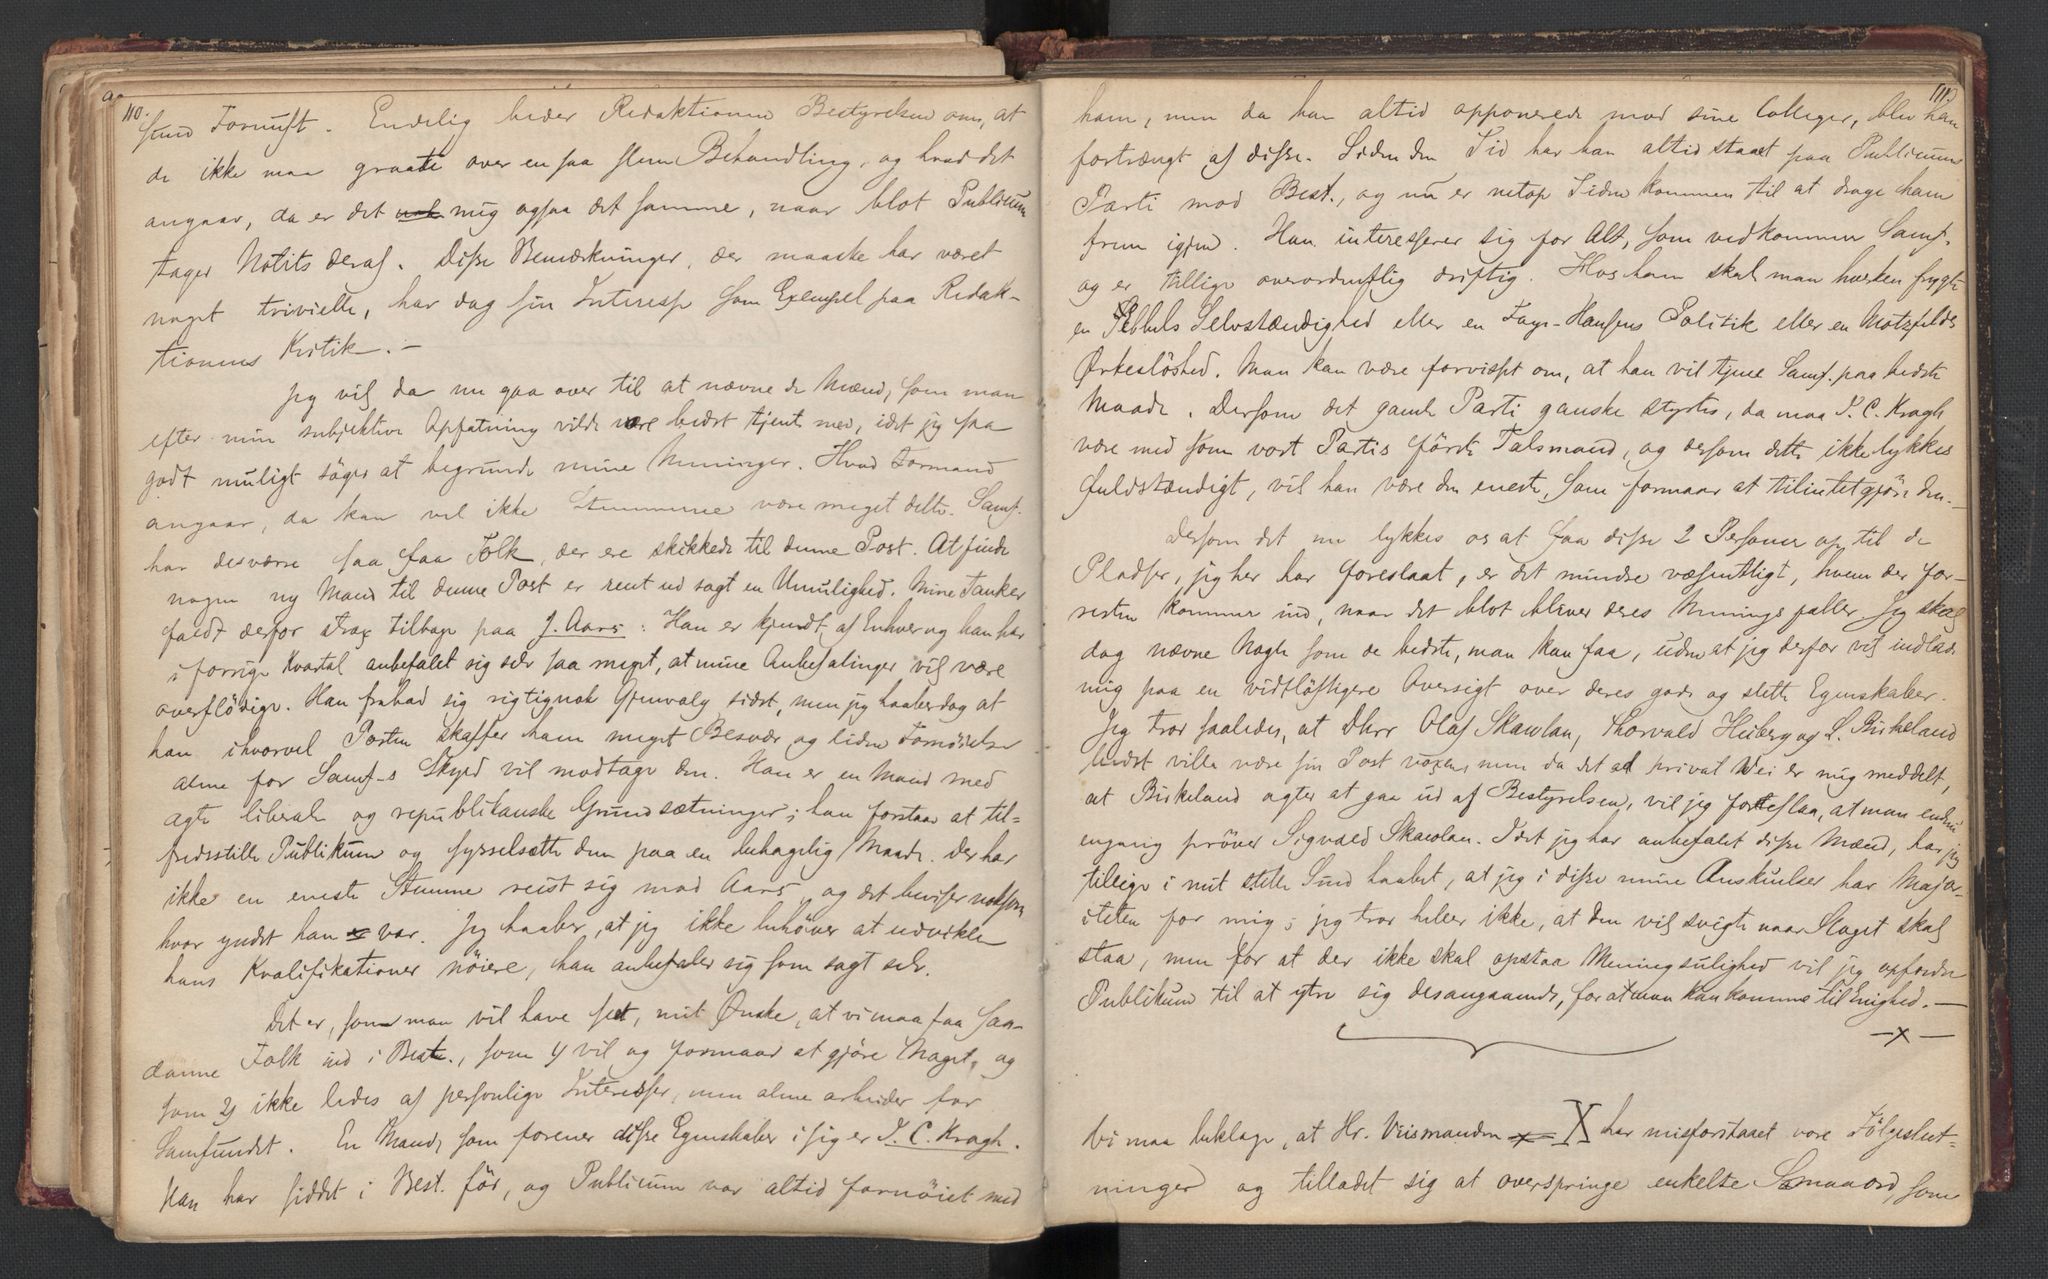 110.
sund Fornuft. Endelig beder Redaktionen Bestyrelsen om, at
de ikke maa graate over en saa slem Behandling, og hvad det
angaar, da er det mig ogsaa det samme, naar blot Publicum
tager Notits deraf. Disse Bemærkninger, der maaske har været
noget trivielle, har dog sin Interesse som Exempel paa Redak-
tionens Kritik. —
Jeg vil da nu gaa over til at nævne de Mænd, som man
efter min subjektive Opfatning vilde være bedst tjent med, idet jeg saa
godt muligt söger at begrunde mine Meninger. Hvad Formand
angaar, da kan vel ikke Stemmerne være meget delte. Samf.
har desværre saa faa Folk, der ere skikkede til denne Post. At finde
nogen ny Mand til denne Post er rent ud sagt en Umulighed. Mine Tanker
faldt derfor strax tilbage paa J. Aars. Han er kjendt af Enhver og han har
i forrige Kvartal anbefalet sig selv saa meget, at mine Anbefalinger vil være
overflödige. Han frabad sig rigtignok Gjenvalg sidst, men jeg haaber dog at
han ihvorvel Posten skaffer ham meget Besvær og liden Fornöielse
alene for Samf-s Skyld vil modtage den. Han er en Mand med
ægte liberale og republikanske Grundsætninger; han forstaar at til-
fredsstille Publikum og sysselsætte dem paa en behagelig Maade. Der har
ikke en eneste Stemme reist sig mod Aars, og det beviser noksom
hvor yndet han var. Jeg haaber, at jeg ikke behöver at udvikle
hans Kvalifikationer nöiere, han anbefaler sig som sagt selv.
Det er, som man vil have set, mit Ønske, at vi maa faa saa-
danne Folk ind i Best., som 1) vil og formaar at gjöre Noget, og
som 2) ikke ledes af personlige Interesser, men alene arbeider for
Samfundet. En Mand, som forener disse Egenskaber i sig er P. C. Kragh.
Han har siddet i Best. för, og Publicum var altid fornöiet med
111.
ham, men da han altid opponerede mod sine Colleger, blev han
fortrængt af disse. Siden den Tid har han altid staaet paa Publicums
Parti mod Best., og nu er netop Tiden kommen til at drage ham
frem igjen. Han interesserer sig for Alt, som vedkommer Samf.
og er tillige overordentlig driftig. Hos ham skal man hverken frygte
en Sibberns Selvstændighed eller en Faye-Hansens Politik eller en Motzfeldts
Ørkeslöshed. Man kan være forvisset om, at han vil tjene Samf. paa bedste
Maade. Dersom det gamle Parti ganske styrtes, da maa P. C. Kragh
være med som vort Partis förste Talsmand, og dersom dette ikke lykkes
fuldstændigt, vil han være den eneste, som formaar at tilintetgjöre den. —
Dersom det nu lykkes os at faa disse 2 Personer op til de
Pladser, jeg her har foreslaat, er det mindre væsentligt, hvem der for-
resten kommer ind, naar det blot bliver deres Meningsfæller. Jeg skal
dog nævne Nogle som de bedste, man kan faa, uden at jeg derfor vil indlade
mig paa en vidtlöftigere Oversigt over deres gode og slette Egenskaber.
Jeg tror saaledes, at DHrr Olaf Skavlan, Thorvald Heiberg og L. Birkeland
bedst ville være sin Post voxen, men da det ad privat Vei er mig meddelt,
at Birkeland agter at gaa ud af Bestyrelsen, vil jeg foreslaa, at man endnu
engang pröver Sigvald Skavlan. Idet jeg har anbefalet disse Mænd, har jeg
tillige i mit stille Sind haabet, at jeg i disse mine Anskuelser har Major-
iteten for mig; jeg tror heller ikke, at den vil svigte naar Slaget skal
staa, men for at der ikke skal opstaa Meningsulighed vil jeg opfordre
Publikum til at ytre sig desangaaende, for at man kan komme til Enighed. —
—x—
Vi maa beklage, at Hr. Viismanden X har misforstaaet vore Fölgeslut-
ninger og tilladet sig at overspringe enkelte Smaaord, som